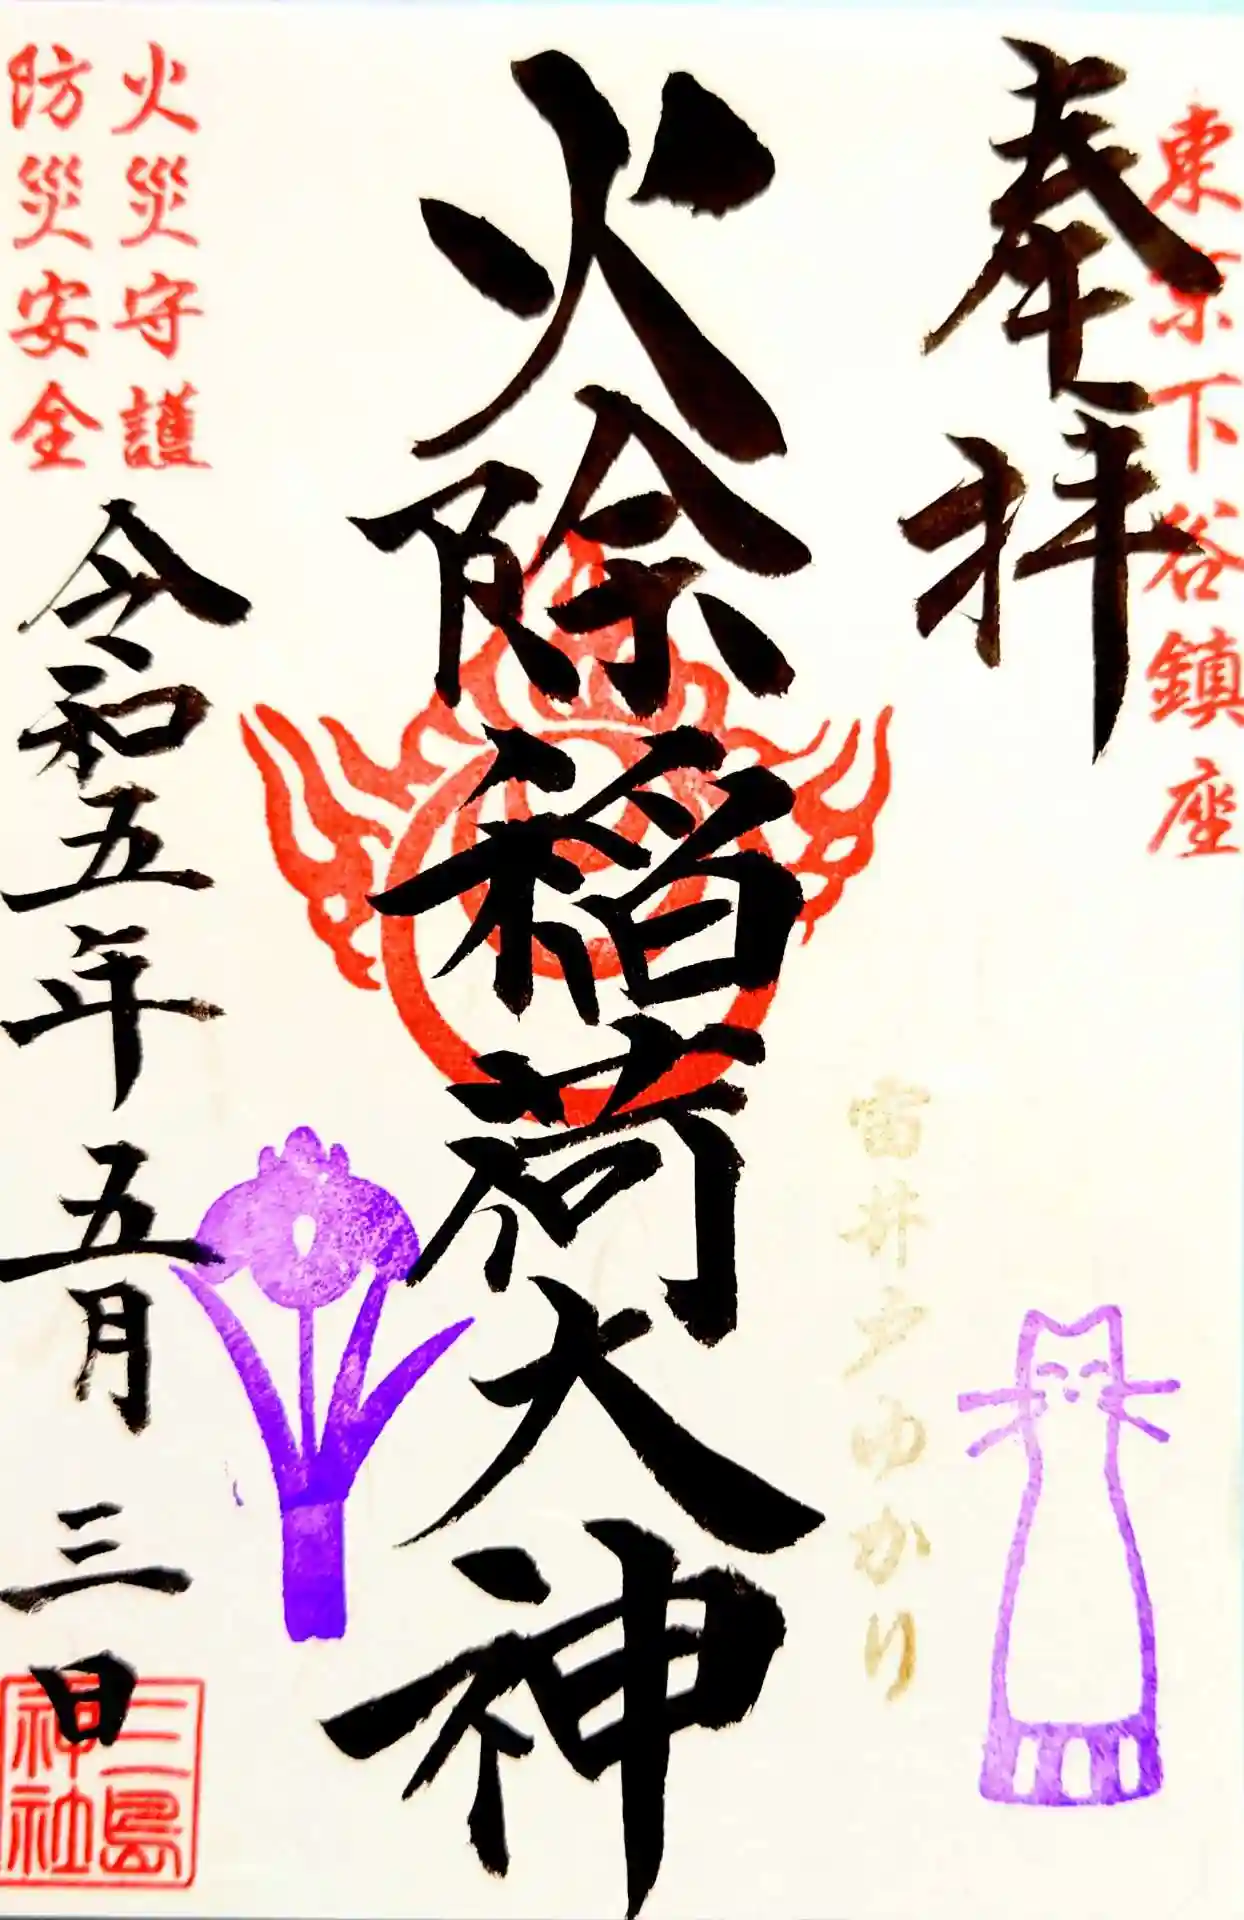 東京下谷鎮座
奉拝
雷井戸ゆかり
火除稲荷大神
火災守護
防災安全
令和五年五月三日
三島
神社